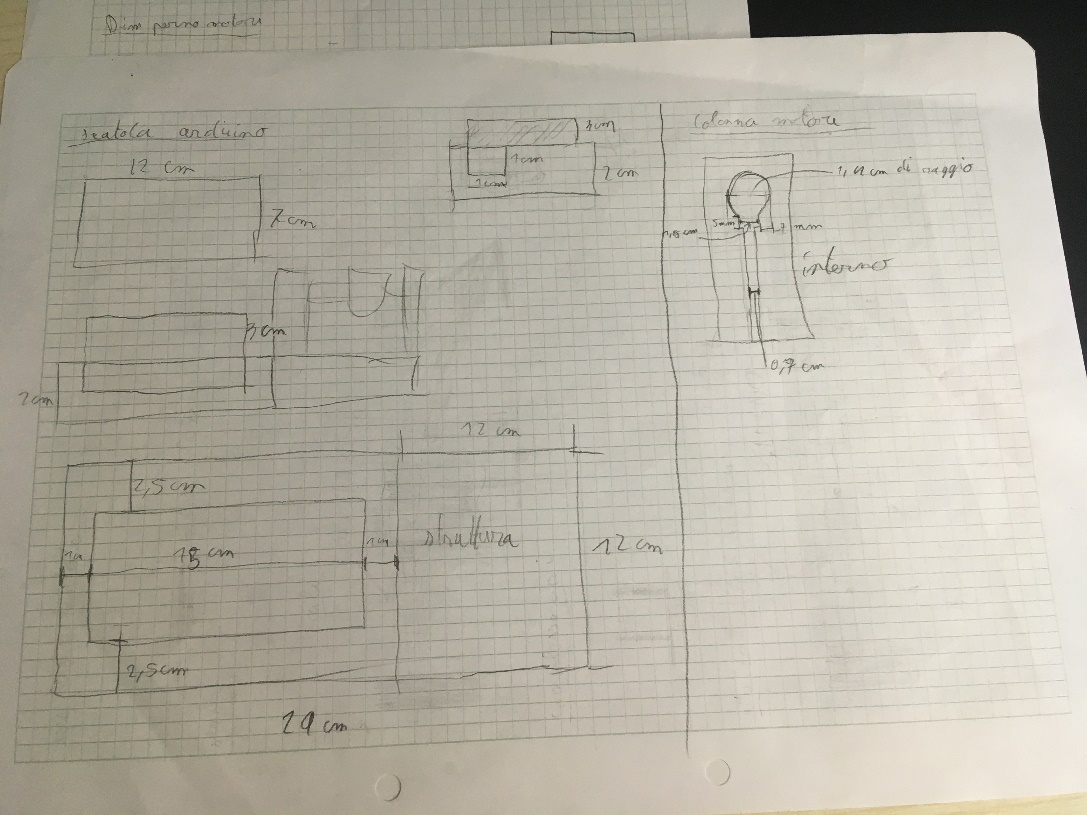 Dim perno motore
scatola arduino
12 cm
7 cm
3cm
1cm
1cm
2 cm
3 cm
2cm
12 cm
2,5cm
1cm
struttura
12 cm
2,5cm
colonna motore
di raggio
5mm
mm
interno
0,7 cm